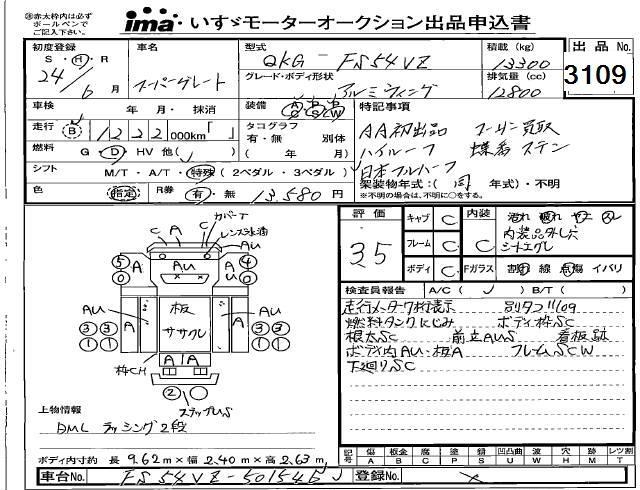 ㊟赤太枠内は必ず
ボールペンで
ご記入下さい。
ima いすゞモーターオークション出品申込書
初度登録
S・H・R
24年
6月
車名
スーパーグレート
型式
QKG-FS54VZ
積載(kg)
13300
出品No.
3109
グレード・ボディ形状
アルミウィング
排気量(cc)
12800
車検 年 月・抹消
装備
特記事項
走行 B 1222000km「 」
タコグラフ
有・無 別体
( 年 月)
AA初出品 ワーマン買取
ハイルーフ 蝶番ステン
日本フルハーフ
燃料 G・D・HV他( )
シフト M/T・A/T・特殊(2ペダル・3ペダル)
架装物年式:(同 年式)・不明
※不明の場合は、不明に○をする。
色 指定 R券 有・無 13,580円
評価
35
キャブ C
フレーム C
ボディ C
内装 C
内装品外し穴
シートエグレ
Fガラス 割・線・点傷・イバリ
検査員報告 A/C( ) B/T( )
走行メーター7桁表示 別タコ11/09
燃料タンクにじみ ボディ枠SC
根太SC 前立AUS 看板跡
ボディ内AU・板A フレームSCW
下廻りSC
カバーT
レンズ水滴
C A C
A AU
AU
5 0
4 0
AU A
板
ササクレ
A AU
3 3
1 1
3 3
1 1
枠CH
A A
2
ステップUS
上物情報
DML ラッシング2段
ボディ内寸約 長 9.62m×幅 2.40m×高 2.63m
記号 傷A 板金B 腐C 塗P 錆S 凹凸曲U 波W 穴H 跡M レツ割T
車台No. FS54VZ-501545
登録No.